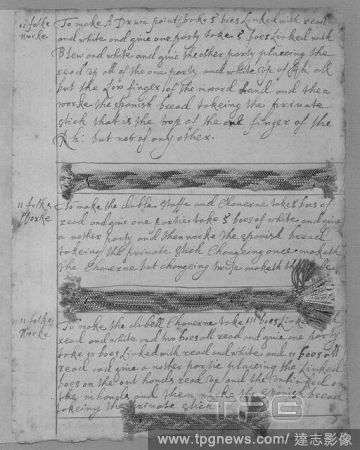 11 folke To make A Drum point: take 5 boes Linked with read
Worke and white and give one party take 5 boes Linked with
Blew and white and give the other party placeing the
read up all of the one party and white up of the all
but the Low finger of the hand and then
worke the spanish bread takeing the private
stick that is the top of the finger of the
R h: but not of only other.
11 folke To make the duble and Chaverne take 5 boes of
Worke read and give one partie take 5 boes of white and give
a nother party and then worke the spanish bread
takeing the private stich Changeing once maketh
the Chaverne but changeing twise maketh the
11 folke To make the dubell Chaverne take boes Linked
Worke read and white and two boes all read and give one party
take boes Linked with read and white and 11 boes all
read and give a nother partie placeing the Linked
boes on the out hands read up and the
the and then make the Spanish bread
takeing the private stich
TPG
www.tpgnews.com / 達志影像